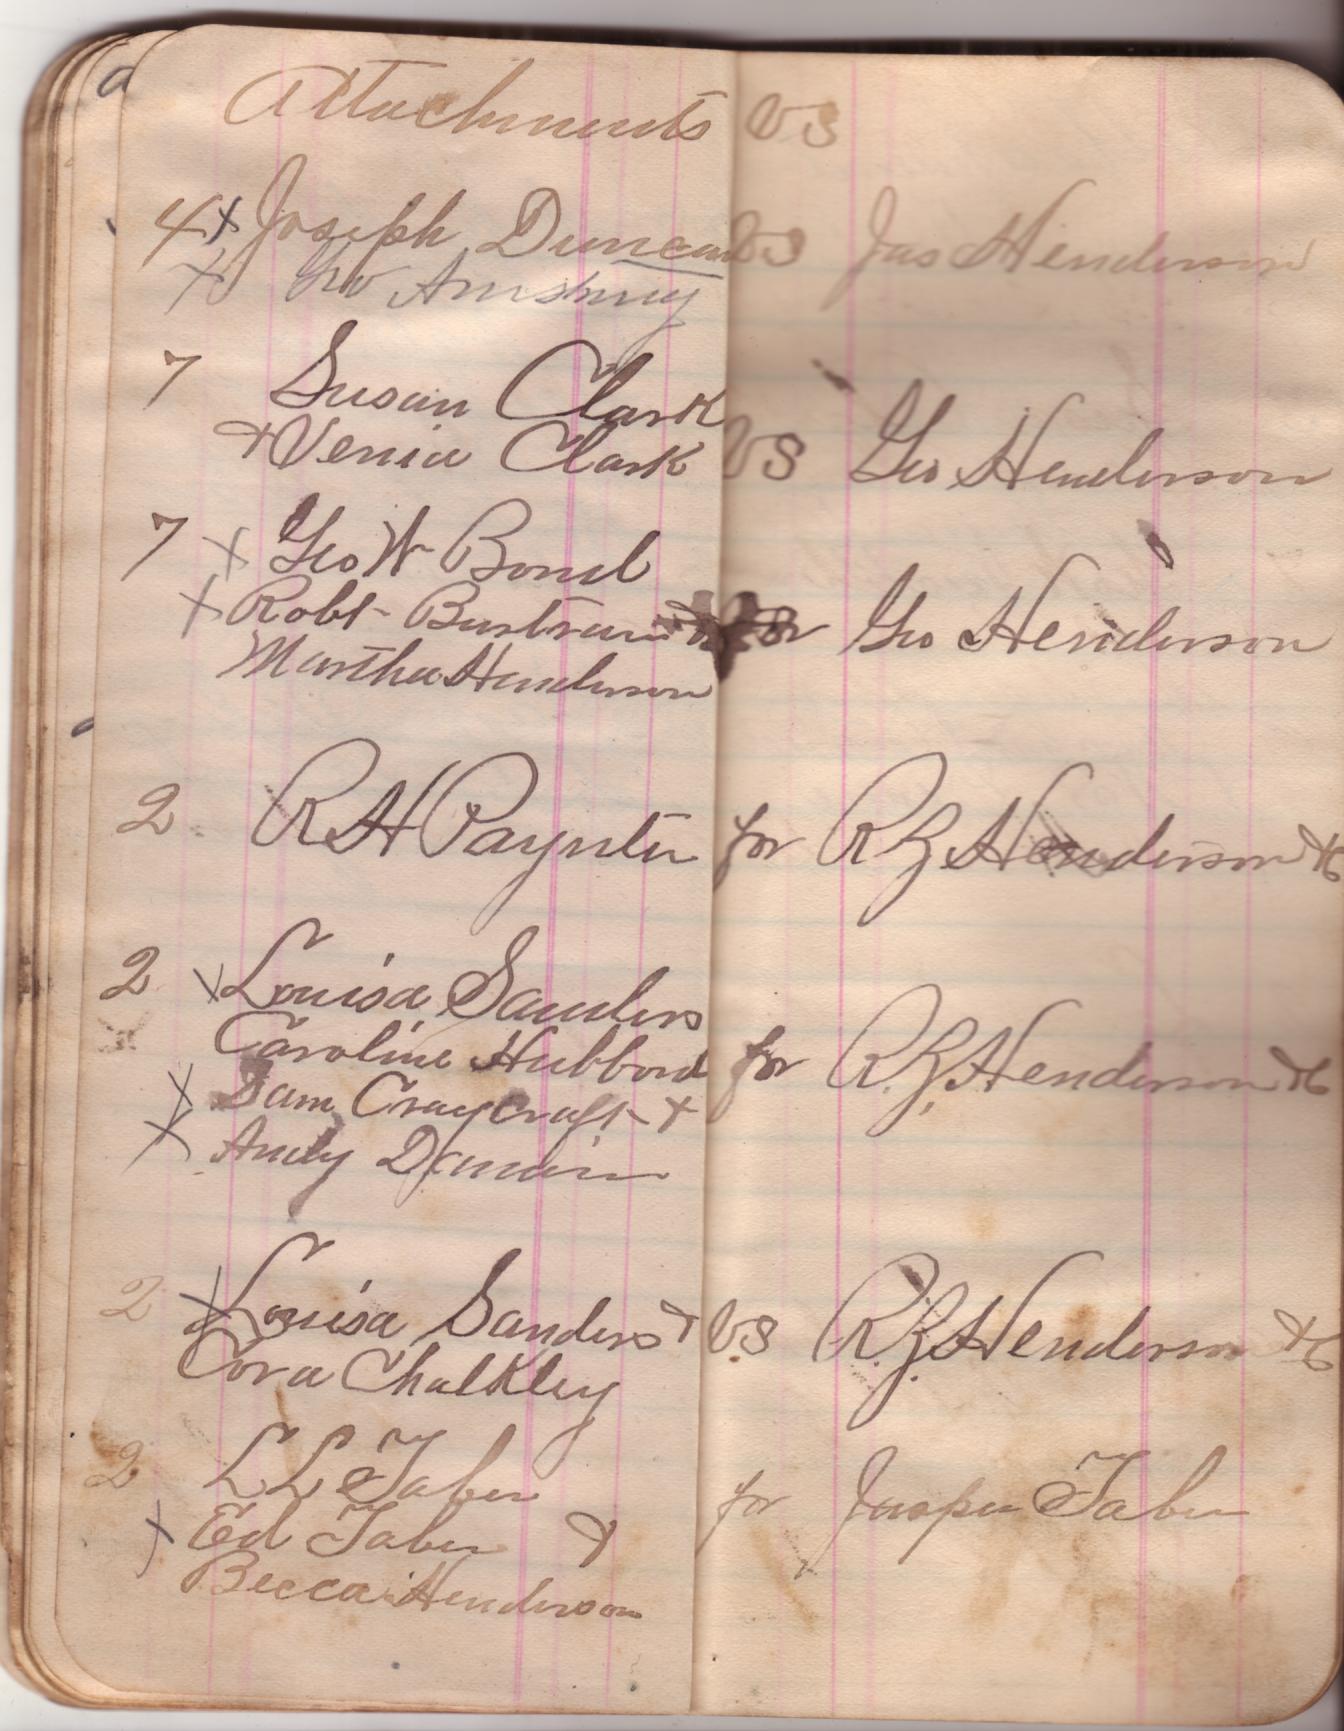 Attachments vs
4 x Joseph Duncan vs Jas Henderson
x Geo Amsbury
7 Susan Clark
+ Venia Clark vs Geo Henderson
7 x Geo W Bond
x Robt Bertram + for Geo Henderson
Martha Henderson
2 R H Paynter for R Z Henderson &c
2 x Louisa Sanders
Caroline Hubbard for R. Z. Henderson &c
x Sam Craycraft +
x Andy
2 x Louisa Sanders + vs R. Z. Henderson &c
Cora Chalkley
2 L L Taber for Jasper Taber
x Ed Taber +
Becca Henderson